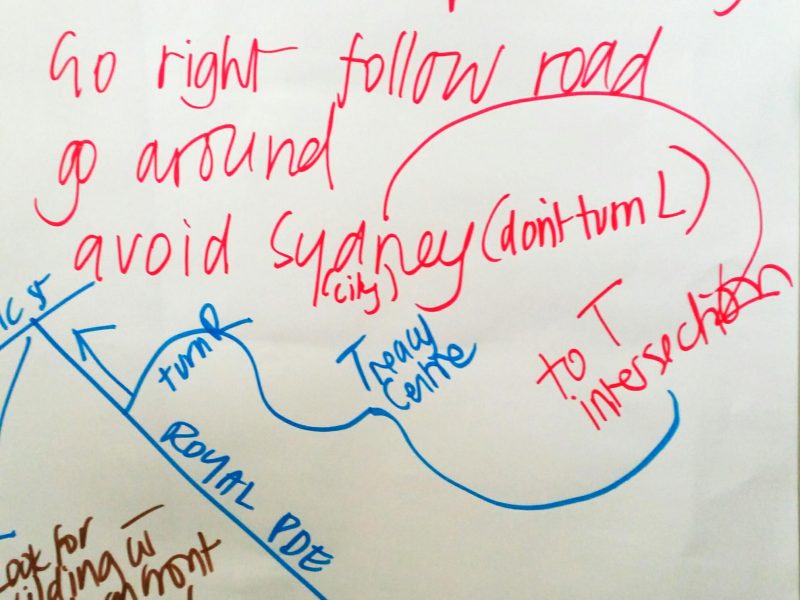 Go right follow road
go around
avoid Sydney (don't turn L)
(city)
to T
intersection
turn R
Treacy
Centre
ROYAL PDE
Look for
building
front